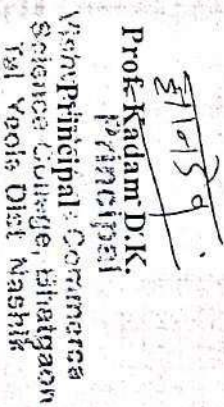 Prof. Kadam D.K.
Principal
Principal Commerce
Science College, Bhatgaon
Tal Yeola Dist Nashik